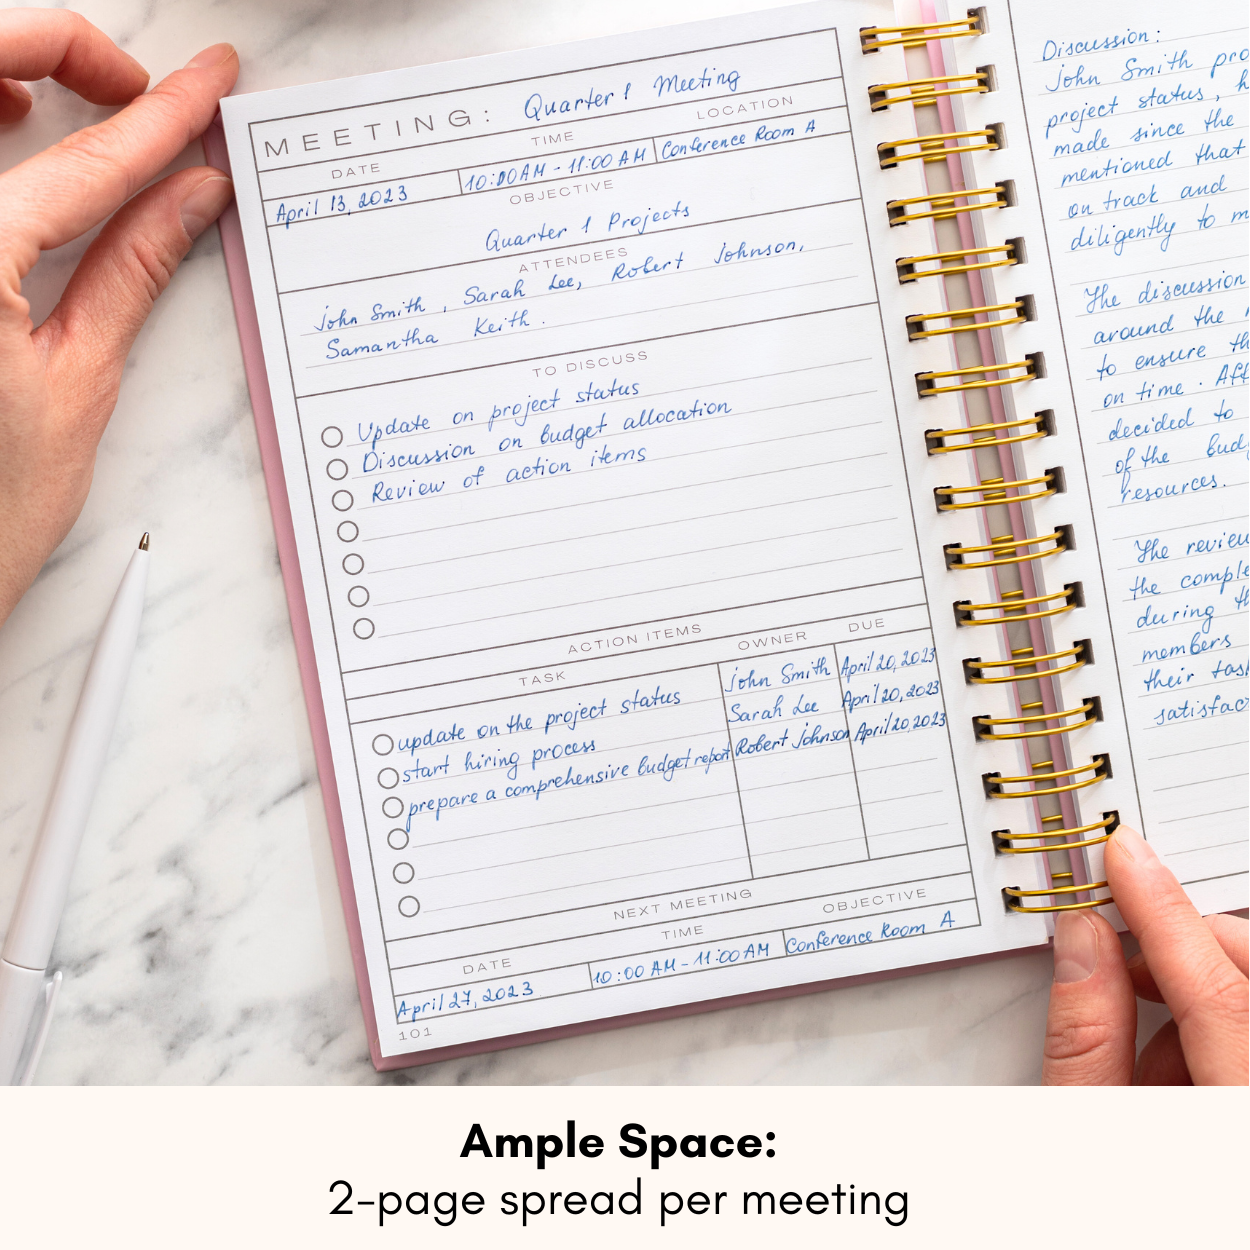 MEETING: Quarter 1 Meeting
DATE TIME LOCATION
April 13, 2023 10:00AM - 11:00 AM Conference Room A
OBJECTIVE
Quarter 1 Projects
ATTENDEES
John Smith, Sarah Lee, Robert Johnson,
Samantha Keith.
TO DISCUSS
Update on project status
Discussion on budget allocation
Review of action items
ACTION ITEMS
TASK OWNER DUE
update on the project status John Smith April 20, 2023
start hiring process Sarah Lee April 20, 2023
prepare a comprehensive budget report Robert Johnson April 20, 2023
NEXT MEETING
DATE TIME OBJECTIVE
April 27, 2023 10:00 AM - 11:00 AM Conference Room A
101
Discussion:
John Smith pro
project status, h
made since the
mentioned that
on track and
diligently to m
The discussion
around the
to ensure th
on time. Aft
decided to
of the budg
resources.
The review
the comple
during th
members
their task
satisfac
Ample Space:
2-page spread per meeting